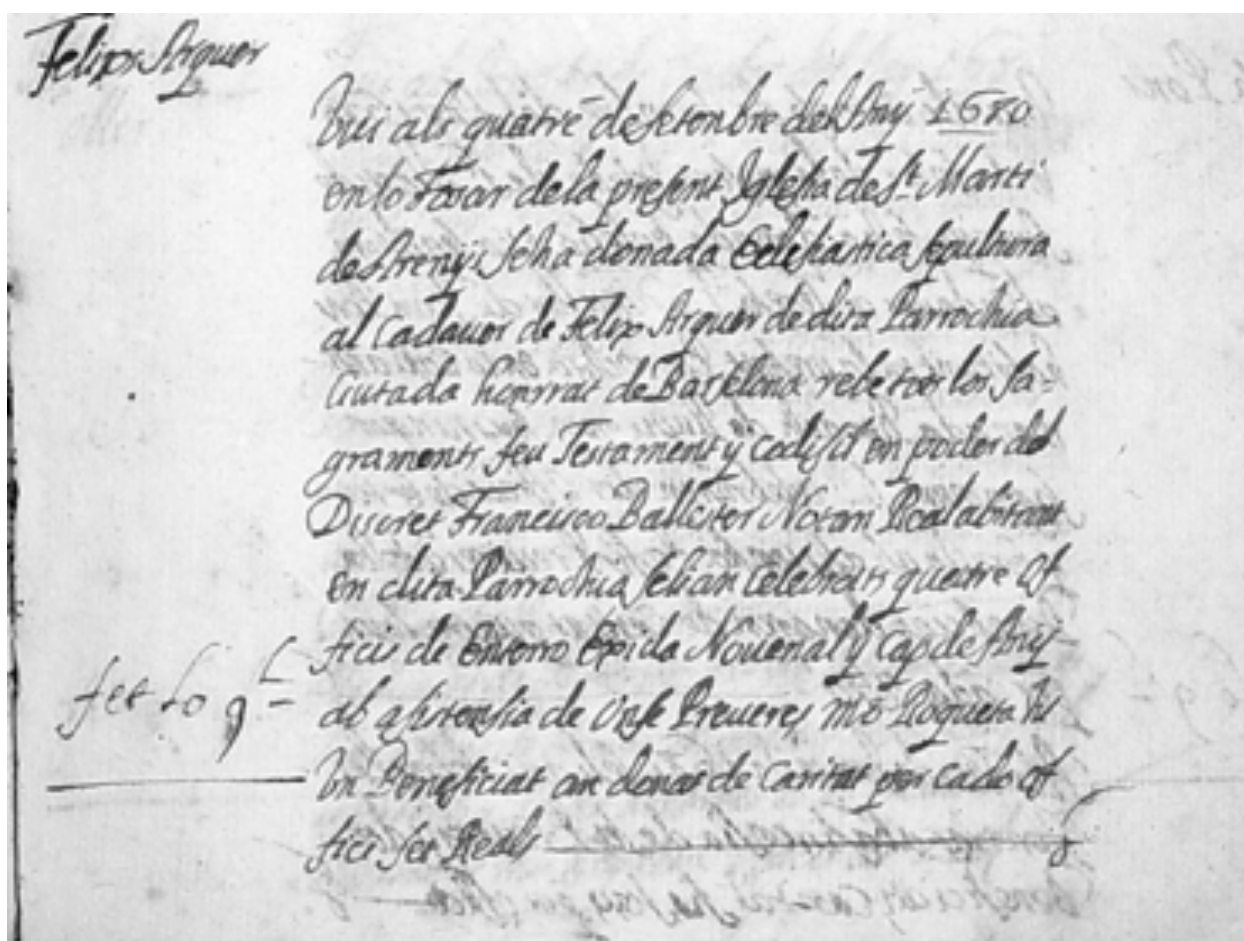 Felix Arquer
Vui als quatre de setembre del Any 1680
en lo Fosar de la present Iglesia de St. Marti
de Arenys se ha donada Eclesiastica sepultura
al Cadauer de Felix Arquer de dita Parrochia
Ciutada honrrat de Barselona rebe tots los sa=
graments feu Testament y codisil en poder del
Discret Francisco Ballester Notari Real abitant
en dita Parrochia se li an celebrats quatre of
ficis de Enterro Exida Nouenal y Cap de Any
ab asistensia de onse Preueres, mo Roquera
un Beneficiat an donat de Caritat per cada of
fici set Reals
fet lo 9